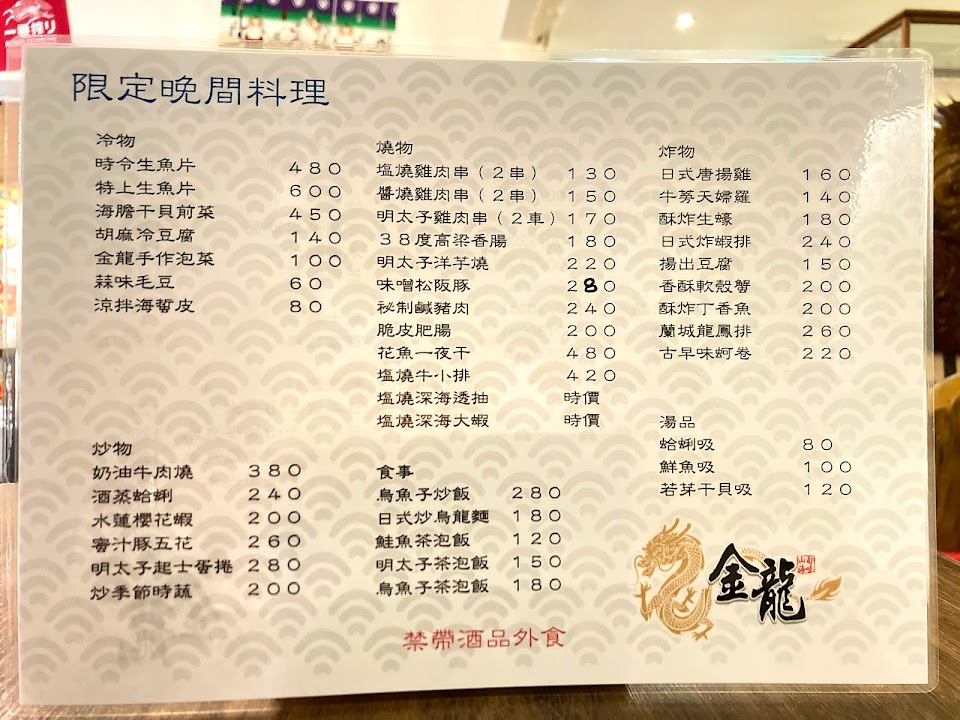 一番搾り
限定晚間料理
冷物
時令生魚片 480
特上生魚片 600
海膽干貝前菜 450
胡麻冷豆腐 140
金龍手作泡菜 100
蒜味毛豆 60
涼拌海蜇皮 80
燒物
塩燒雞肉串（2串） 130
醬燒雞肉串（2串） 150
明太子雞肉串（2車） 170
38度高梁香腸 180
明太子洋芋燒 220
味噌松阪豚 280
祕制鹹豬肉 240
脆皮肥腸 200
花魚一夜干 480
塩燒牛小排 420
塩燒深海透抽 時價
塩燒深海大蝦 時價
炸物
日式唐揚雞 160
牛蒡天婦羅 140
酥炸生蠔 180
日式炸蝦排 240
揚出豆腐 150
香酥軟殼蟹 200
酥炸丁香魚 200
蘭城龍鳳排 260
古早味蚵卷 220
湯品
蛤蜊吸 80
鮮魚吸 100
若芽干貝吸 120
炒物
奶油牛肉燒 380
酒蒸蛤蜊 240
水蓮櫻花蝦 200
蜜汁豚五花 260
明太子起士蛋捲 280
炒季節時蔬 200
食事
烏魚子炒飯 280
日式炒烏龍麵 180
鮭魚茶泡飯 120
明太子茶泡飯 150
烏魚子茶泡飯 180
金龍
禁帶酒品外食